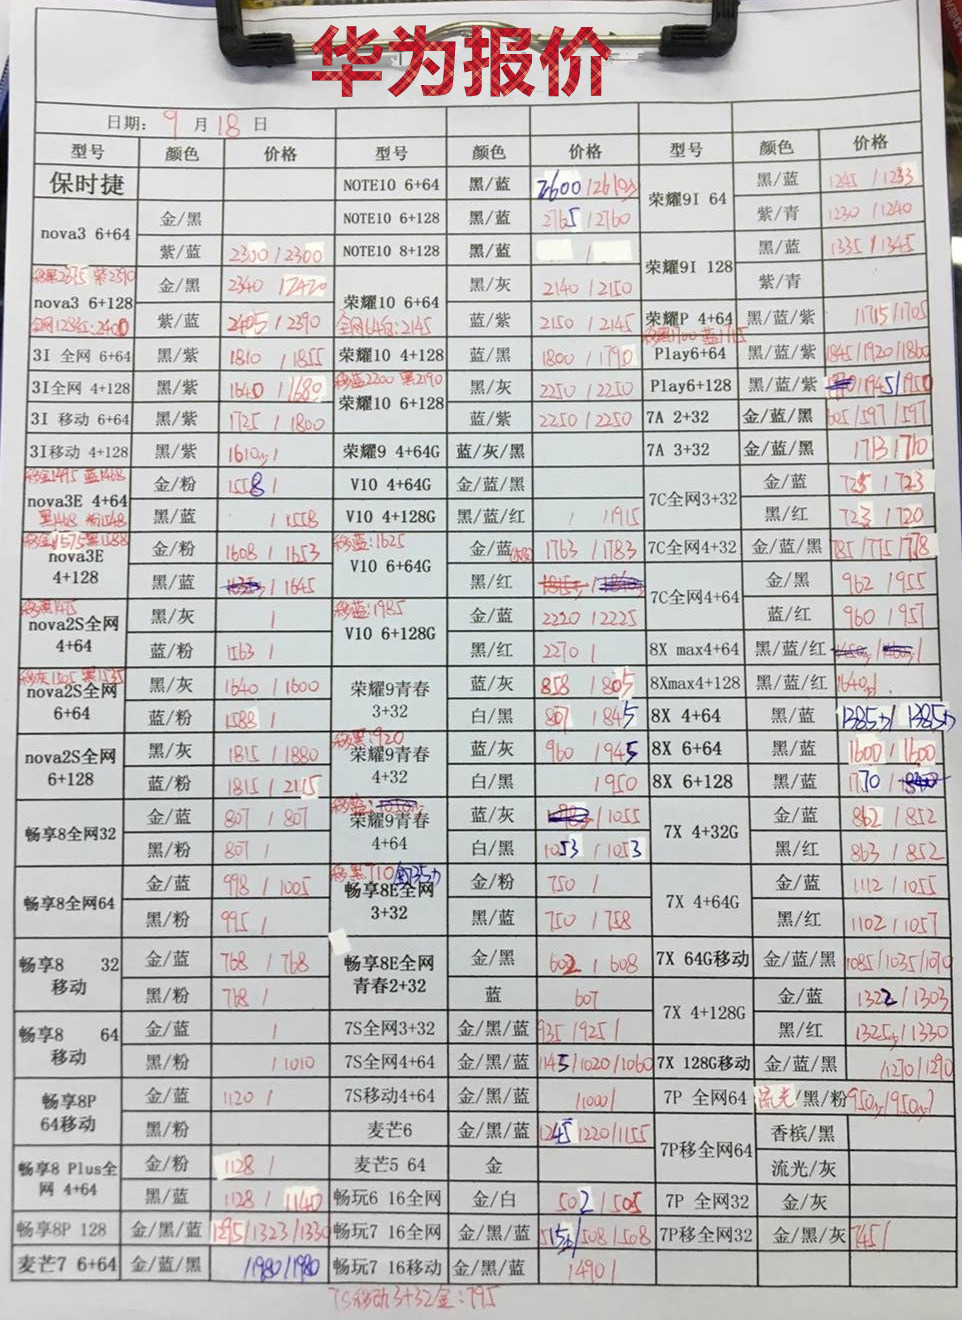 华为报价
日期: 9 月 18 日
型号 颜色 价格 型号 颜色 价格 型号 颜色 价格
保时捷 NOTE10 6+64 黑/蓝 荣耀9I 64 黑/蓝 1245 / 1233
nova3 6+64 金/黑 NOTE10 6+128 黑/蓝 2765 / 2760 紫/青 1230 / 1240
紫/蓝 2300 / 2300 NOTE10 8+128 黑/蓝 / 荣耀9I 128 黑/蓝 1335 / 1345
nova3 6+128 金/黑 2340 / 2420 荣耀10 6+64 黑/灰 2140 / 2150 紫/青
紫/蓝 2405 / 2390 全网64白:2145 蓝/紫 2150 / 2145 荣耀P 4+64 黑/蓝/紫 1715 / 1705
3I 全网 6+64 黑/紫 1810 / 1855 荣耀10 4+128 蓝/黑 1800 / 1790 Play6+64 黑/蓝/紫 1845/1920/1860
3I全网 4+128 黑/紫 1640 / 1680 荣耀10 6+128 黑/灰 2250 / 2250 Play6+128 黑/蓝/紫
3I 移动 6+64 黑/紫 1725 / 1800 蓝/紫 2250 / 2250 7A 2+32 金/蓝/黑 605/597/597
3I移动 4+128 黑/紫 荣耀9 4+64G 蓝/灰/黑 7A 3+32 金/蓝/黑
nova3E 4+64 金/粉 1558 / V10 4+64G 金/蓝/黑 7C全网3+32 金/蓝 725 / 723
黑/蓝 / 1558 V10 4+128G 黑/蓝/红 / 1915 黑/红 723 / 720
nova3E 4+128 金/粉 1608 / 1653 移蓝:1625 V10 6+64G 金/蓝 1763 / 1783 7C全网4+32 金/蓝/黑 785/775/778
黑/蓝 / 1645 黑/红 7C全网4+64 金/黑 962 / 955
nova2S全网 4+64 黑/灰 / 移蓝:1985 V10 6+128G 金/蓝 2220 / 2225 蓝/红 960 / 957
蓝/粉 1563 / 黑/红 2270 / 8X max4+64 黑/蓝/红
nova2S全网 6+64 黑/灰 1640 / 1600 荣耀9青春 3+32 蓝/灰 858 / 805 8Xmax4+128 黑/蓝/红
蓝/粉 1588 / 白/黑 807 / 845 8X 4+64 黑/蓝
nova2S全网 6+128 黑/灰 1815 / 1880 移黑:920 荣耀9青春 4+32 蓝/灰 960 / 945 8X 6+64 黑/蓝 1600 / 1600
蓝/粉 1815 / 2115 白/黑 / 950 8X 6+128 黑/蓝 1770 /
畅享8全网32 金/蓝 807 / 807 荣耀9青春 4+64 蓝/灰 / 1055 7X 4+32G 金/蓝 862 / 852
黑/粉 807 / 白/黑 1053 / 1053 黑/红 863 / 852
畅享8全网64 金/蓝 998 / 1005 畅享8E全网 3+32 金/粉 750 / 7X 4+64G 金/蓝 1112 / 1055
黑/粉 995 / 黑/蓝 750 / 758 黑/红 1102 / 1057
畅享8 32 移动 金/蓝 768 / 768 畅享8E全网 青春2+32 金/黑 602 / 608 7X 64G移动 金/蓝/黑 1085/1035/1010
黑/粉 768 / 蓝 607 7X 4+128G 金/蓝 1322 / 1303
畅享8 64 移动 金/蓝 / 7S全网3+32 金/黑/蓝 935 / 925 / 黑/红
黑/粉 / 1010 7S全网4+64 金/黑/蓝 1145/1020/1060 7X 128G移动 金/蓝/黑 /1270/1290
畅享8P 64移动 金/蓝 1120 / 7S移动4+64 金/黑/蓝 /1000/ 7P 全网64 流光/黑/粉
黑/粉 麦芒6 金/黑/蓝 1245 1220/1155 7P移全网64 香槟/黑
畅享8 Plus全网 4+64 金/粉 1128 / 麦芒5 64 金 流光/灰
黑/蓝 1128 / 1140 畅玩6 16全网 金/白 502 / 505 7P 全网32 金/灰
畅享8P 128 金/黑/蓝 1295/1323/1330 畅玩7 16全网 金/黑/蓝 7P移全网32 金/黑/灰 745 /
麦芒7 6+64 金/蓝/黑 /1980/1980 畅玩7 16移动 金/黑/蓝 /490/
7S移动3+32金:795